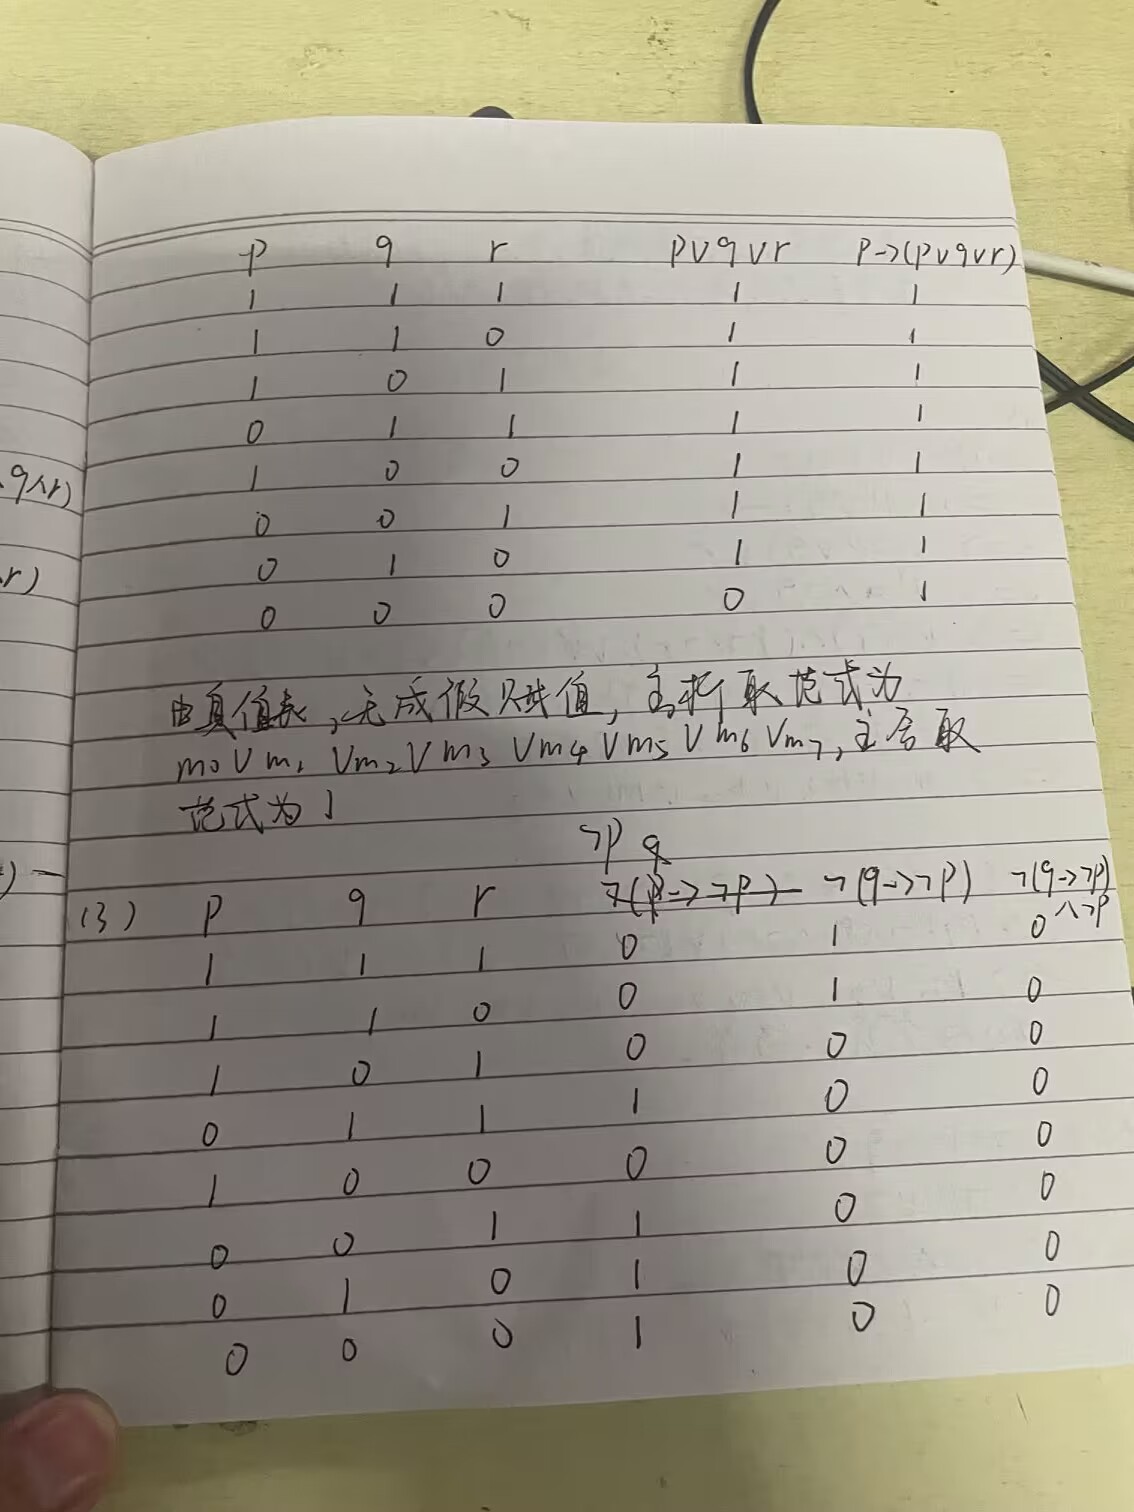 p q r p∨q∨r p→(p∨q∨r)
1 1 1 1 1
1 1 0 1 1
1 0 1 1 1
0 1 1 1 1
1 0 0 1 1
0 0 1 1 1
0 1 0 1 1
0 0 0 0 1
由真值表,无成假赋值,主析取范式为
m0∨m1∨m2∨m3∨m4∨m5∨m6∨m7,主合取
范式为1
¬p q
(3) p q r ¬(p→¬p) ¬(q→¬p) ¬(q→¬p)
∧¬p
1 1 1 0 1 0
1 1 0 0 1 0
1 0 1 0 0 0
0 1 1 1 0 0
1 0 0 0 0 0
0 0 1 1 0 0
0 1 0 1 0 0
0 0 0 1 0 0
q∧r)
r)
) —